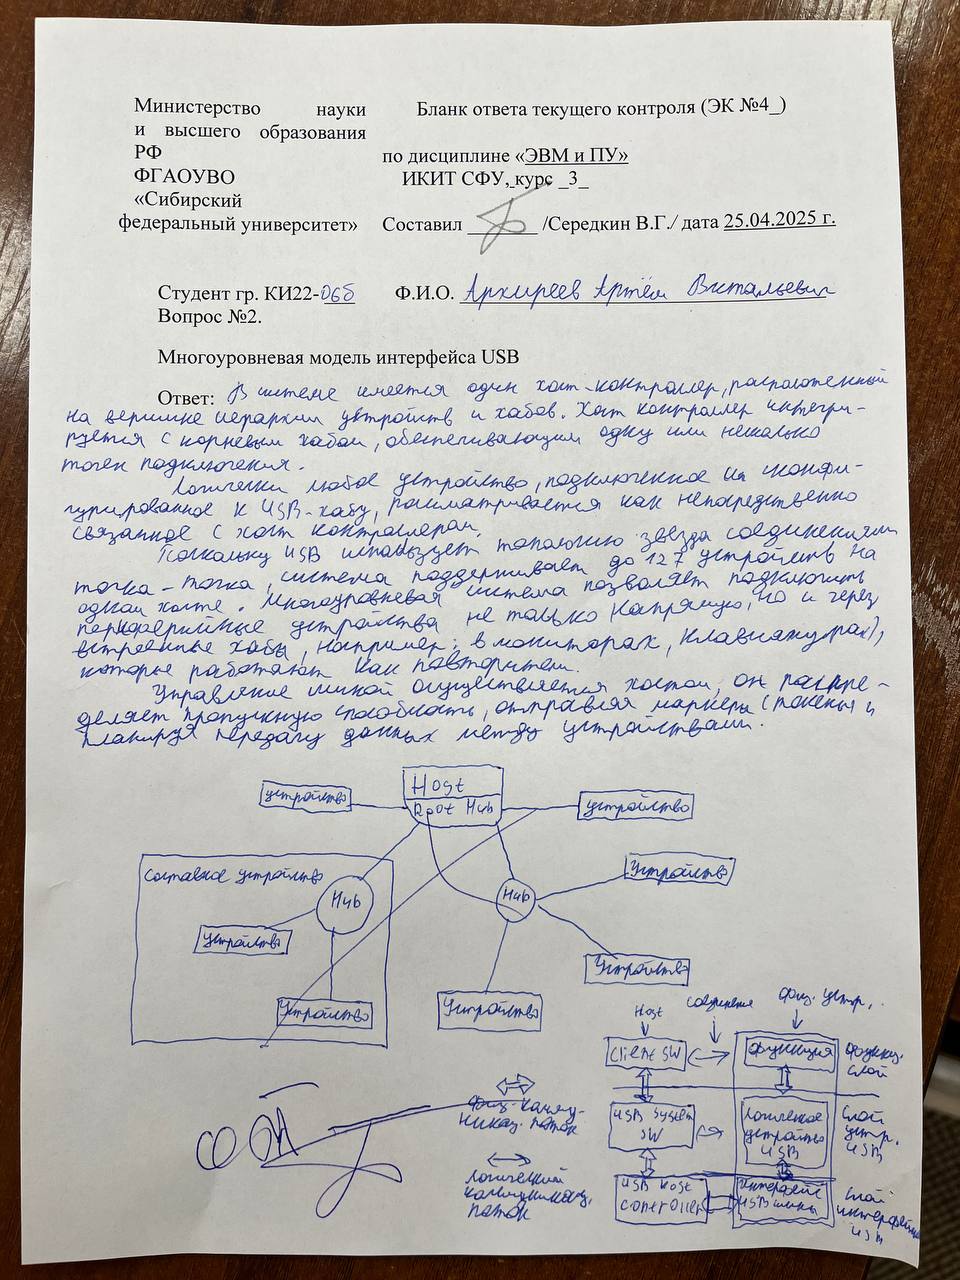 Министерство науки
и высшего образования
РФ
ФГАОУВО
«Сибирский
федеральный университет»
Бланк ответа текущего контроля (ЭК №4_)
по дисциплине «ЭВМ и ПУ»
ИКИТ СФУ,_курс _3_
Составил _______ /Середкин В.Г./ дата 25.04.2025 г.
Студент гр. КИ22-06б Ф.И.О. Архиреев Артём Витальевич
Вопрос №2.
Многоуровневая модель интерфейса USB
Ответ: В системе имеется один хост-контроллер, расположенный
на вершине иерархии устройств и хабов. Хост контроллер интегри-
руется с корневым хабом, обеспечивающим одну или несколько
точек подключения.
Логически любое устройство, подключенное и сконфи-
гурированное к USB-хабу, рассматривается как непосредственно
связанное с хост контроллером.
Поскольку USB использует топологию звезда соединениями
точка-точка, система поддерживает до 127 устройств на
одном хосте. Многоуровневая система позволяет подключить
периферийные устройства не только напрямую, но и через
встроенные хабы, например: в мониторах, клавиатурах),
которые работают как повторители.
Управление шиной осуществляется хостом, он распре-
деляет пропускную способность, отправляя маркеры (токены) и
планируя передачу данных между устройствами.
Host
Root Hub
устройство
устройство
Составное устройство
Hub
Hub
Устройство
Устройство
Устройство
Устройство
Устройство
Устройство
Host
соединение
физ. устр.
Client SW
функция
функц.
слой
USB System
SW
Логическое
устройство
USB
Слой
устр.
USB
USB Host
Controller
Интерфейс
USB шины
Слой
интерфейса
USB
физ. комму-
никац. поток
логический
коммуникац.
поток